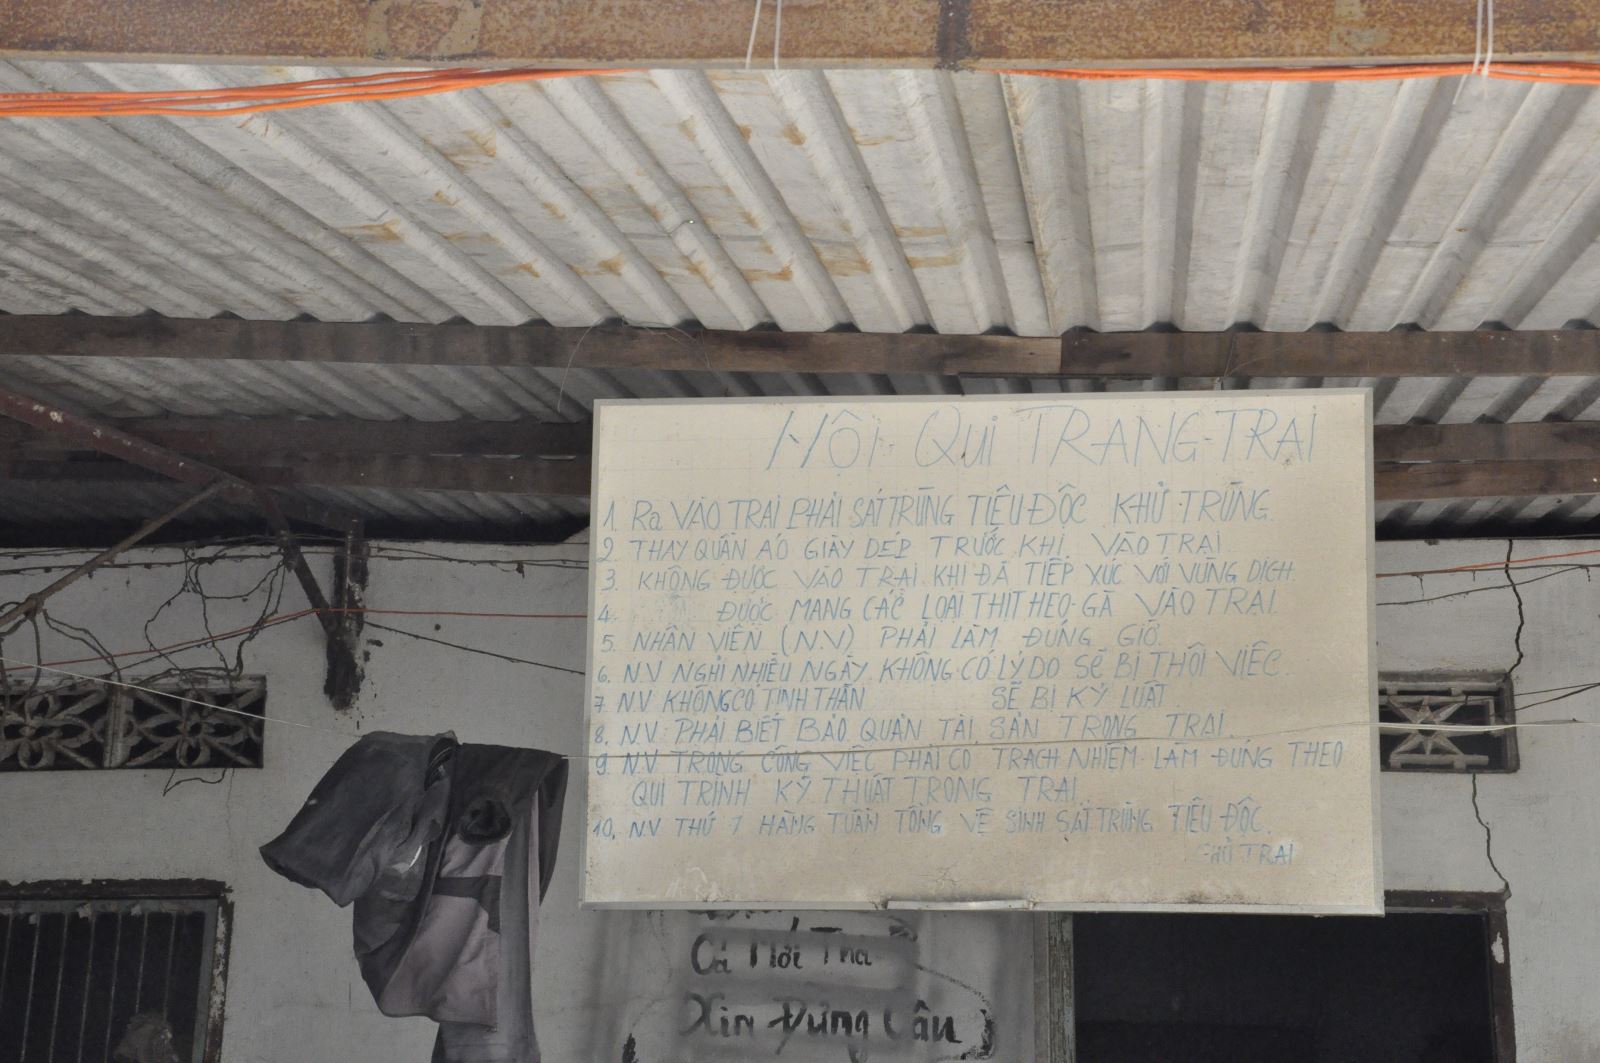 NỘI QUI TRANG TRẠI
1. Ra VÀO TRẠI PHẢI SÁT TRÙNG TIÊU ĐỘC KHỬ TRÙNG.
2. THAY QUẦN ÁO GIÀY DÉP TRƯỚC KHI VÀO TRẠI.
3. KHÔNG ĐƯỢC VÀO TRẠI KHI ĐÃ TIẾP XÚC VỚI VÙNG DỊCH.
4. ĐƯỢC MANG CÁC LOẠI THỊT HEO-GÀ VÀO TRẠI.
5. NHÂN VIÊN (N.V) PHẢI LÀM ĐÚNG GIỜ.
6. N.V NGHỈ NHIỀU NGÀY KHÔNG CÓ LÝ DO SẼ BỊ THÔI VIỆC.
7 N.V KHÔNG CÓ TINH THẦN SẼ BỊ KỶ LUẬT.
8. N.V. PHẢI BIẾT BẢO QUẢN TÀI SẢN TRONG TRẠI.
9. N.V TRONG CÔNG VIỆC PHẢI CÓ TRÁCH NHIỆM LÀM ĐÚNG THEO
QUI TRÌNH KỸ THUẬT TRONG TRẠI
10. N.V THỨ 7 HÀNG TUẦN TỔNG VỆ SINH SÁT TRÙNG TIÊU ĐỘC.
CHỦ TRẠI
Cá Mới Thả
Xin Đừng Câu